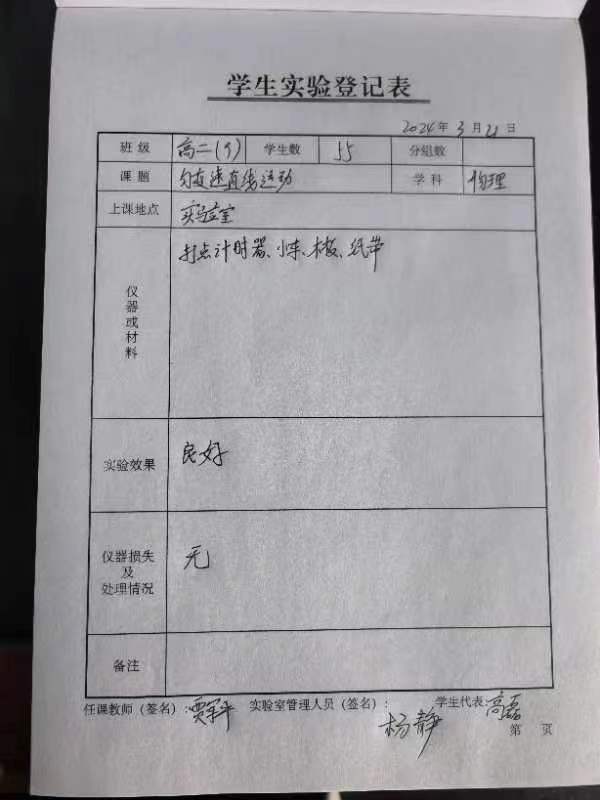 学生实验登记表
2024年 3月21日
班级 高二(9) 学生数 55 分组数
课题 匀变速直线运动 学科 物理
上课地点 实验室
仪器或材料 打点计时器、小车、木板、纸带
实验效果 良好
仪器损失及处理情况 无
备注
任课教师（签名）: 贾 实验室管理人员（签名）: 杨静 学生代表: 高磊
第 页